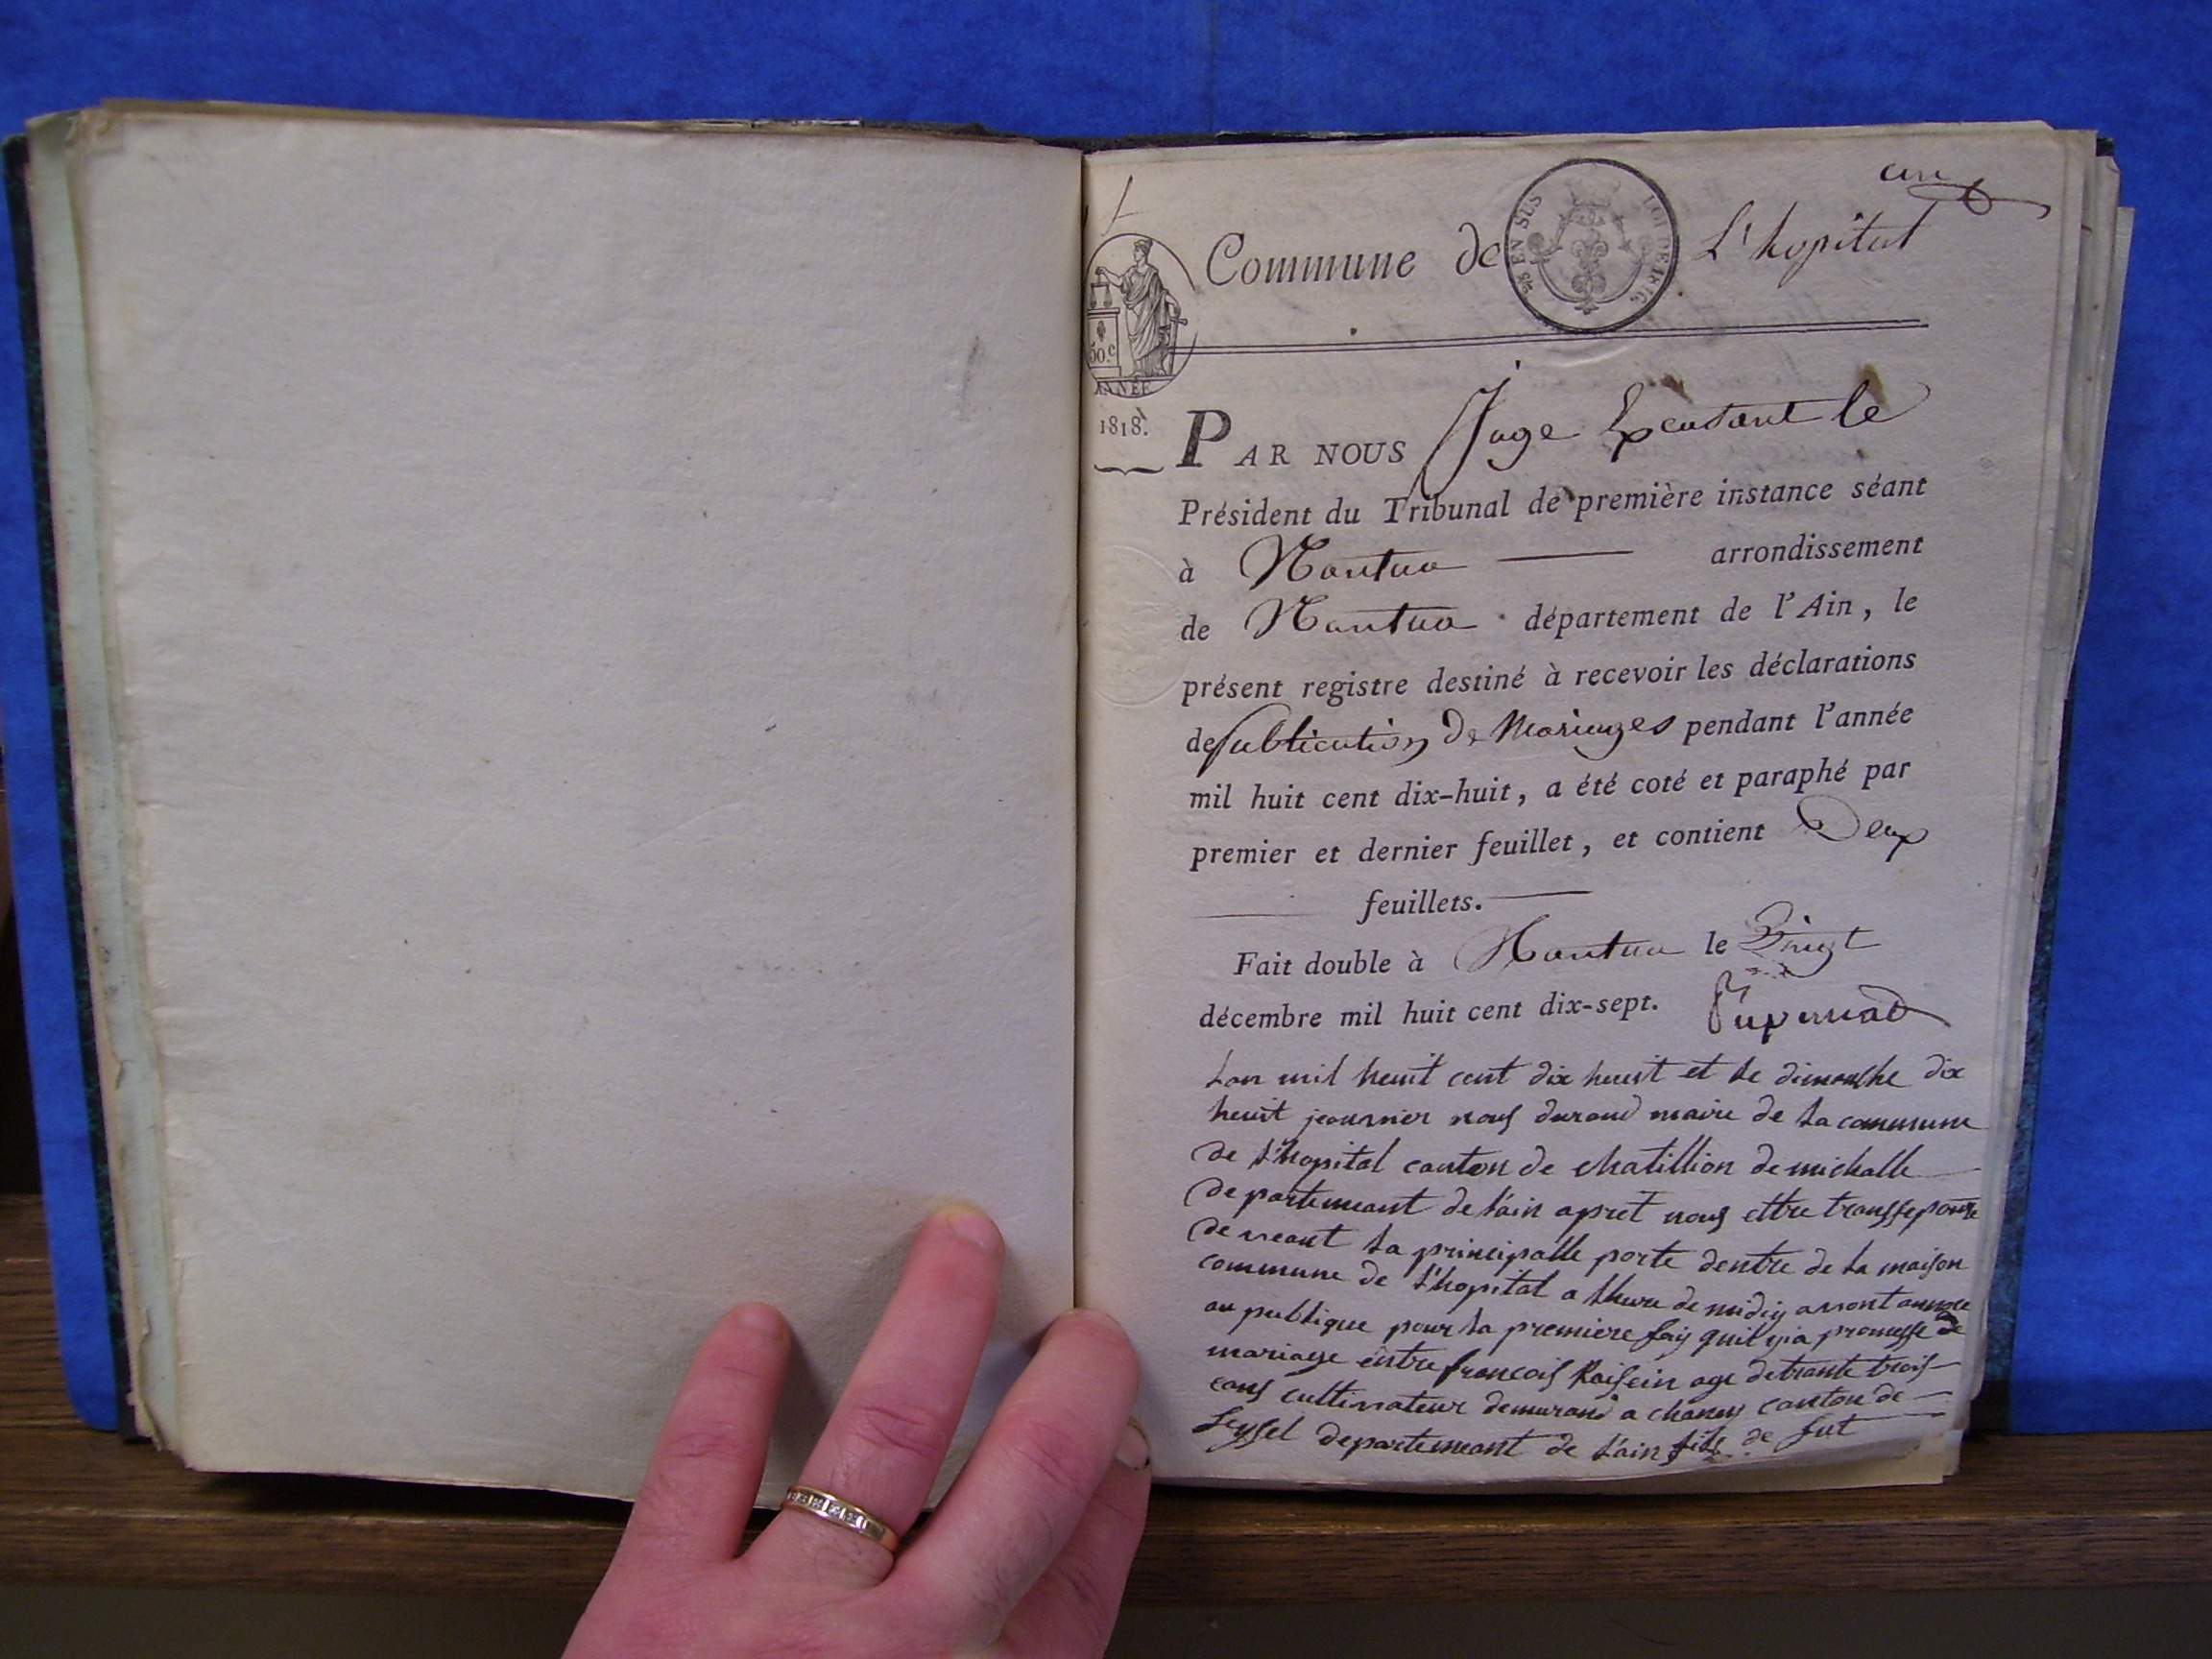 un
Commune de L'hopital
EN SES
LOI DE 1816
50.c
ANNÉE
1818.
PAR NOUS Juge Exersant le
Président du Tribunal de première instance séant
à Nantua arrondissement
de Nantua département de l'Ain, le
présent registre destiné à recevoir les déclarations
de publication De Mariages pendant l'année
mil huit cent dix-huit, a été coté et paraphé par
premier et dernier feuillet, et contient Deux
feuillets.
Fait double à Nantua le Vingt
décembre mil huit cent dix-sept.
Lan mil heuit cent dix heuit et le dimenche dix
heuit jeanvier nous durand maire de la commune
de L'hopital canton de chatillion de michalle
departemeant de L'ain apret nous ettre transseporte
deveant la principalle porte dentre de la maison
commune de L'hopital a Lheure de midiy avont annonce
au publique pour la premiere fois quil yia promesse de
mariage entre francois Raisein age de trante trois
eans cultivateur demurand a chaney canton de
Seyssel departemeant de L'ain fils de fut